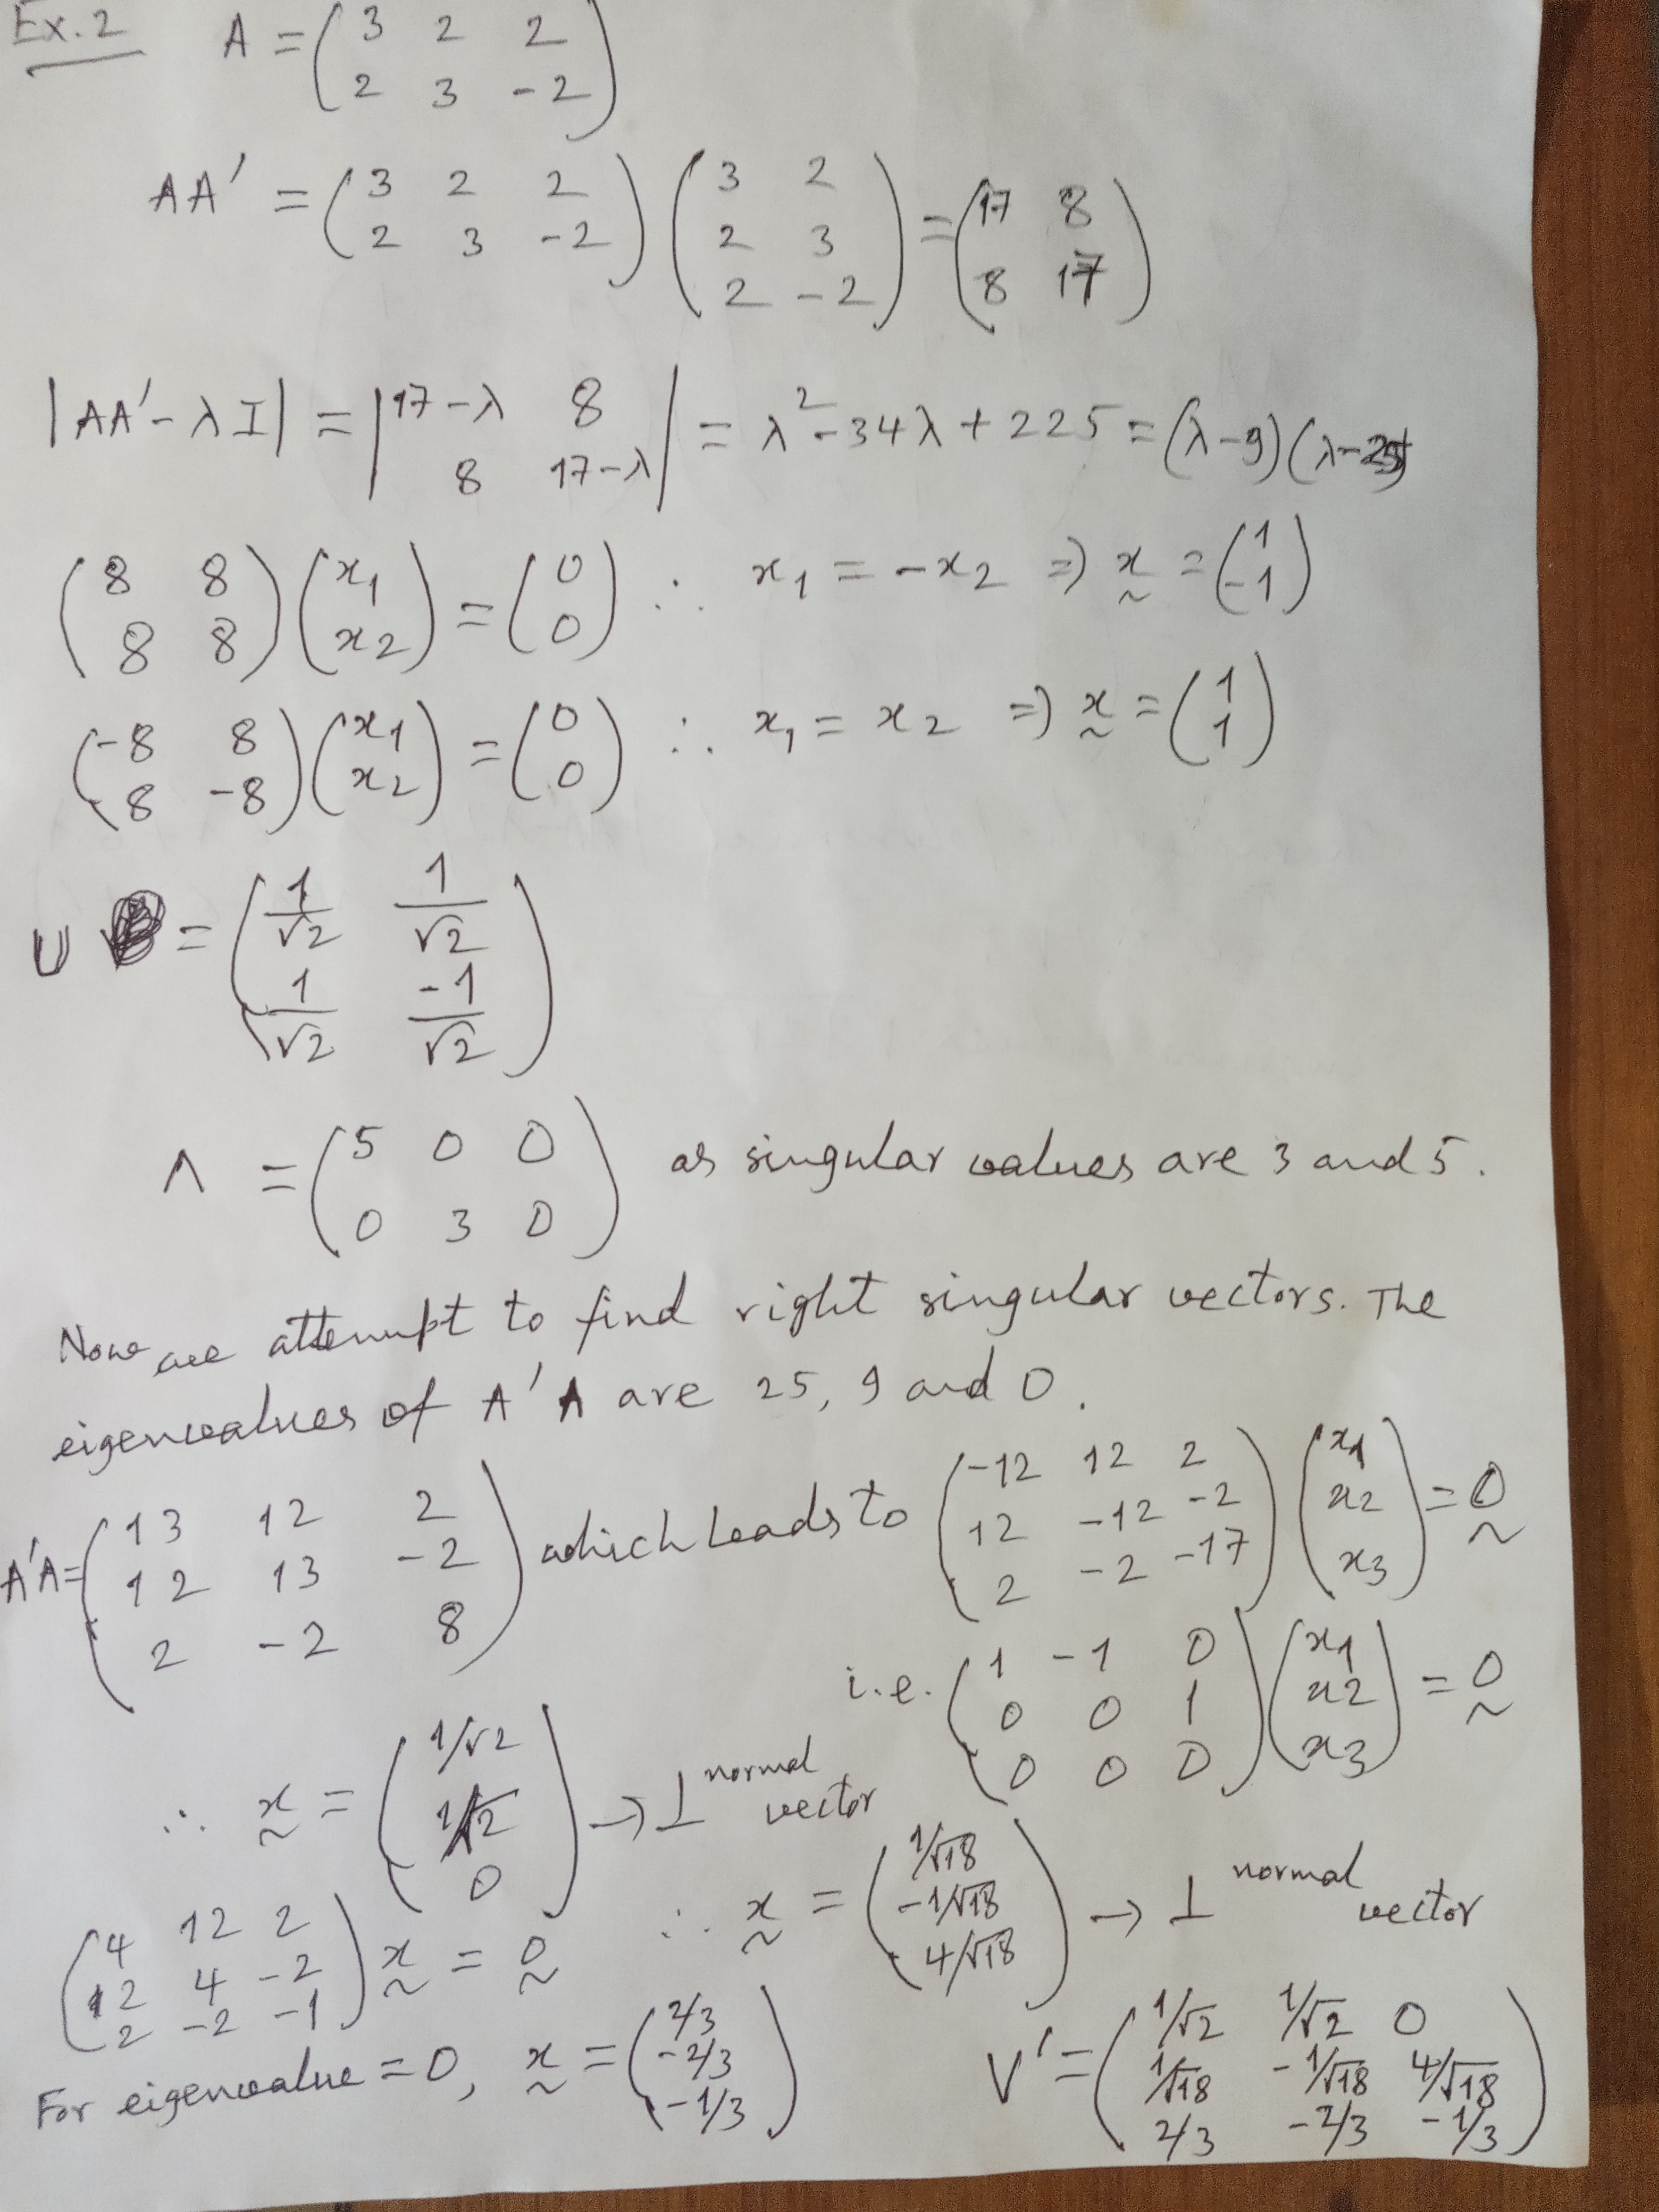 Ex. 2 A = (3 2 2; 2 3 -2)
AA' = (3 2 2; 2 3 -2) (3 2; 2 3; 2 -2) = (17 8; 8 17)
|AA' - λI| = |17-λ 8; 8 17-λ| = λ² - 34λ + 225 = (λ-9)(λ-25)
(8 8; 8 8) (x1; x2) = (0; 0) ∴ x1 = -x2 ⇒ x̰ = (1; -1)
(-8 8; 8 -8) (x1; x2) = (0; 0) ∴ x1 = x2 ⇒ x̰ = (1; 1)
U = (1/√2 1/√2; 1/√2 -1/√2)
Λ = (5 0 0; 0 3 0) as singular values are 3 and 5.
Now we attempt to find right singular vectors. The
eigenvalues of A'A are 25, 9 and 0.
A'A = (13 12 2; 12 13 -2; 2 -2 8) which leads to (-12 12 2; 12 -12 -2; 2 -2 -17) (x1; x2; x3) = 0̰
i.e. (1 -1 0; 0 0 1; 0 0 0) (x1; x2; x3) = 0̰
∴ x̰ = (1/√2; 1/√2; 0) → ⊥ normal vector
(4 12 2; 12 4 -2; 2 -2 -1) x̰ = 0̰ ∴ x̰ = (1/√18; -1/√18; 4/√18) → ⊥ normal vector
For eigenvalue = 0, x̰ = (2/3; -2/3; -1/3) V' = (1/√2 1/√2 0; 1/√18 -1/√18 4/√18; 2/3 -2/3 -1/3)